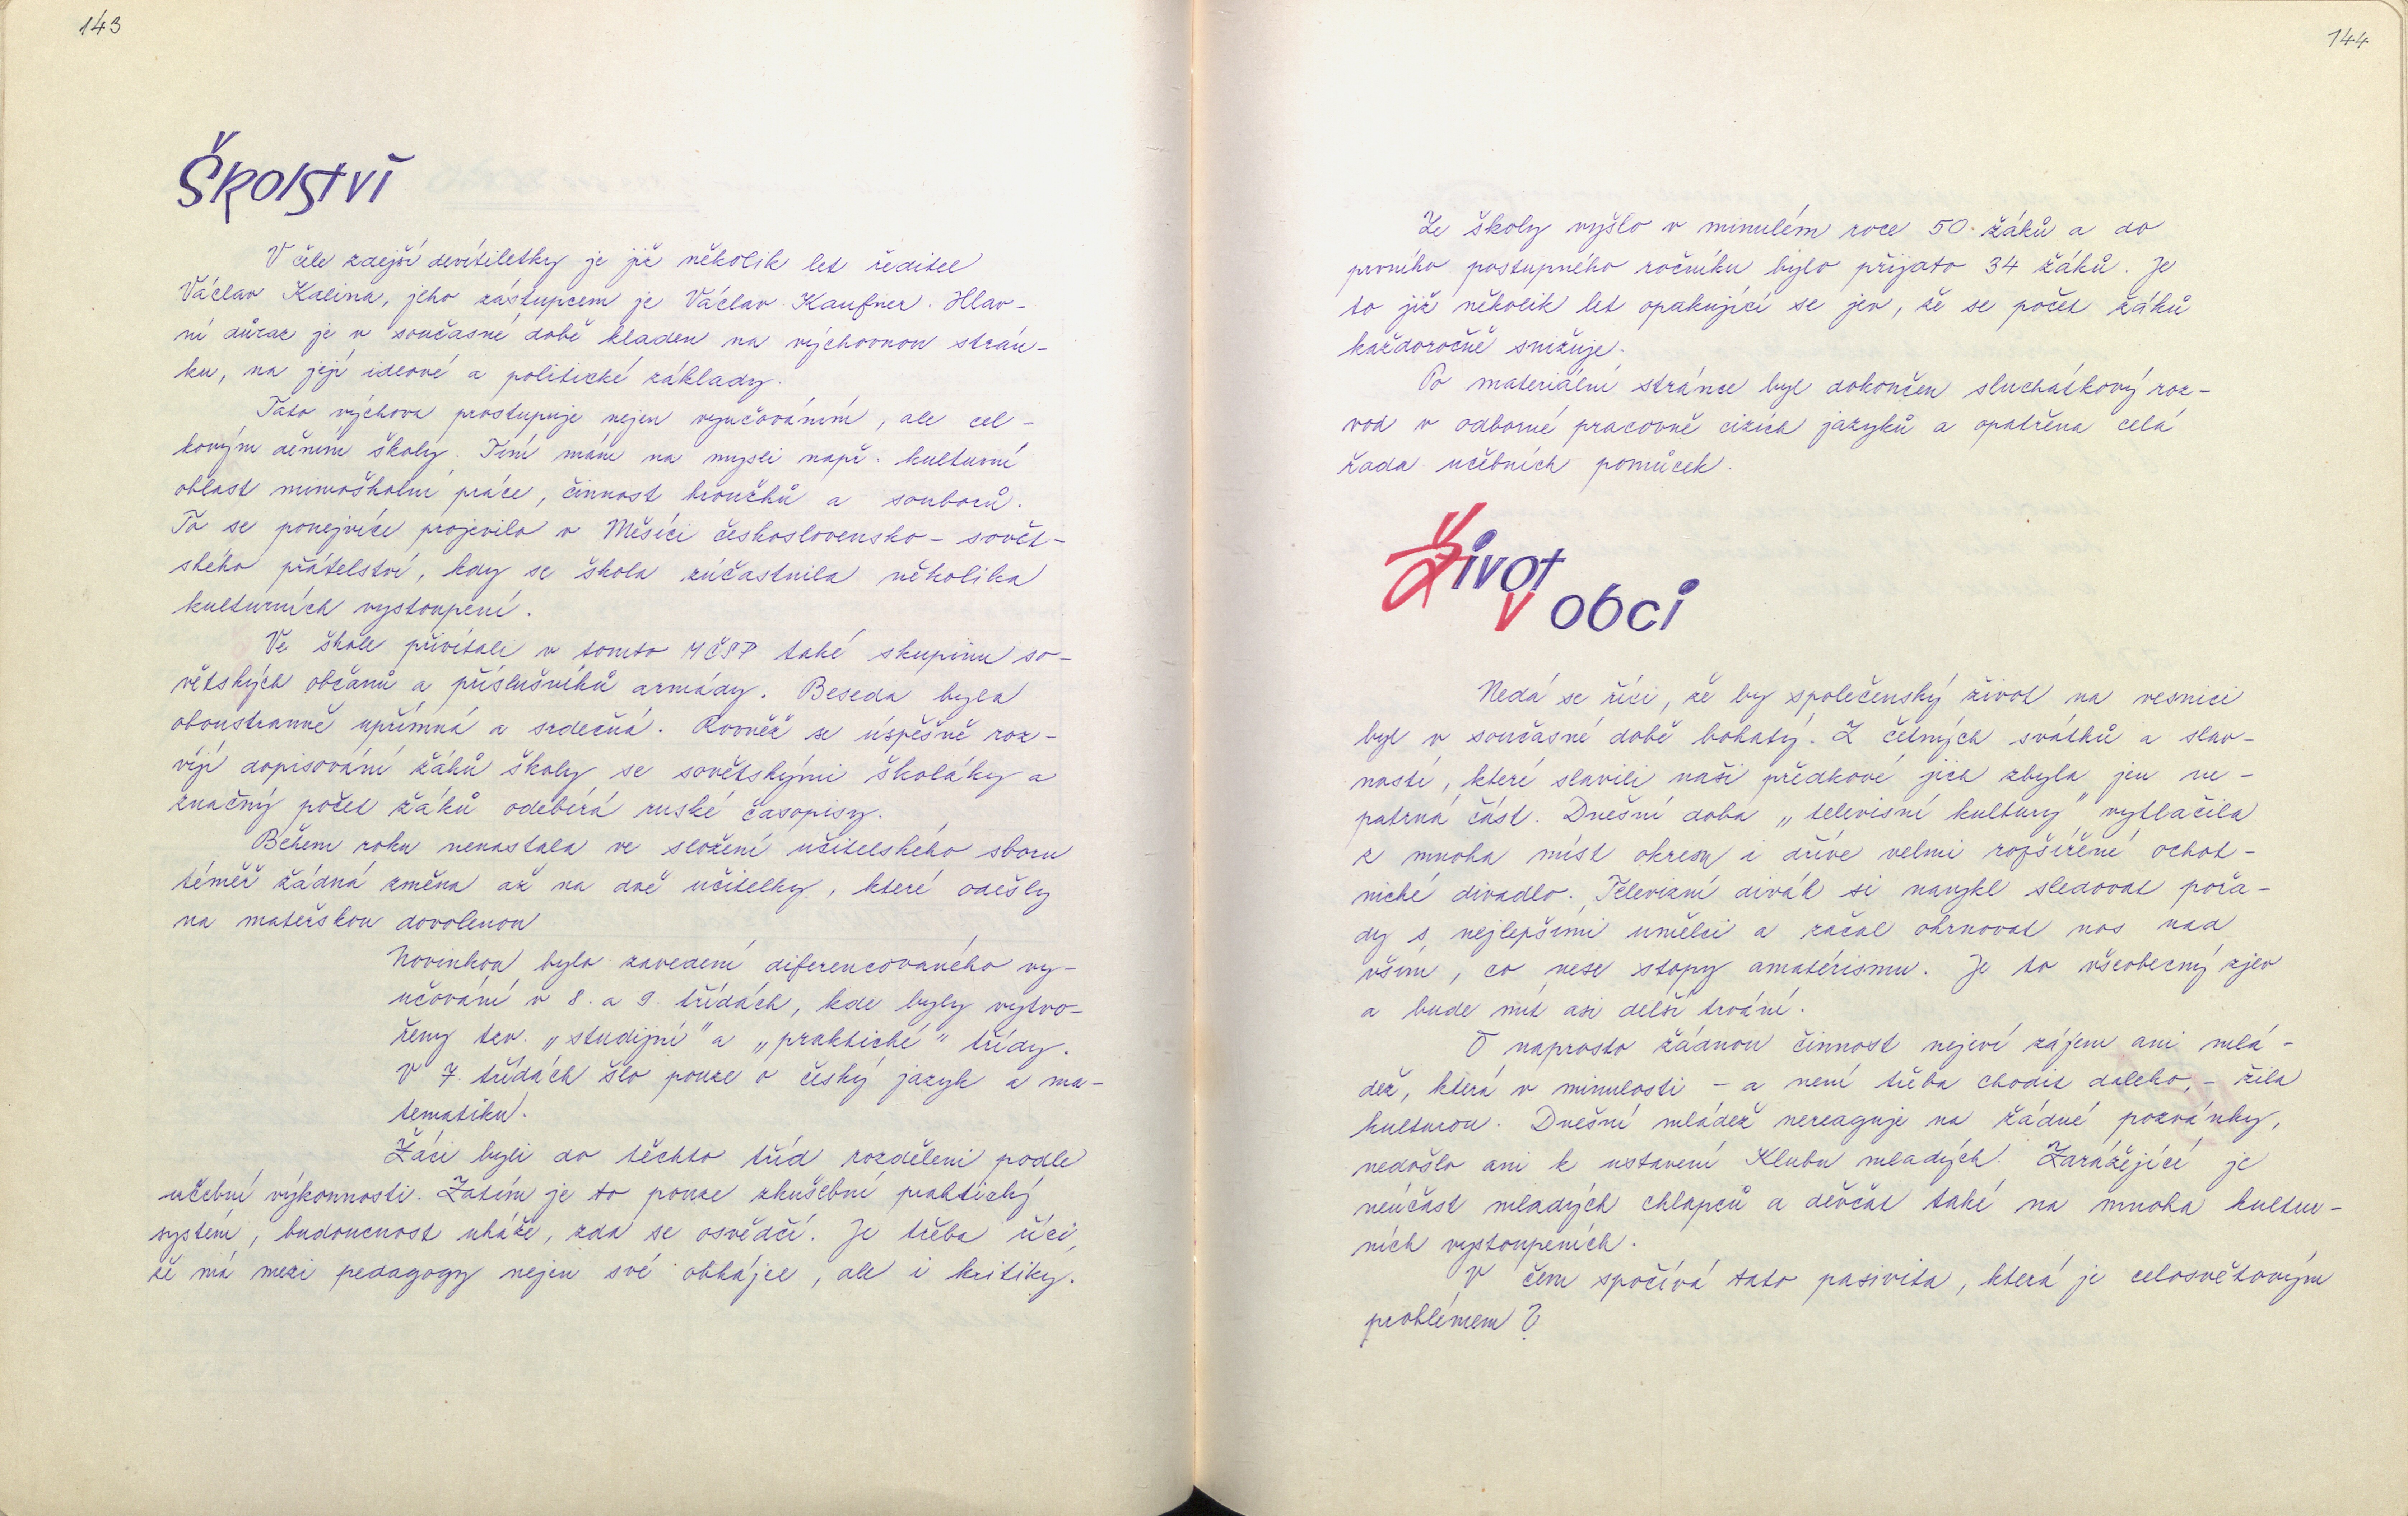 143
Školství
V čele zdejší devítiletky je již několik let ředitel
Václav Kalina, jeho zástupcem je Václav Kaufner. Hlav-
ní důraz je v současné době kladen na výchovnou strán-
ku, na její ideové a politické základy.
Tato výchova prostupuje nejen vyučováním, ale cel-
kovým děním školy. Tím mám na mysli např. kulturní
oblast mimoškolní práce, činnost kroužků a souborů.
To se ponejvíce projevilo v Měsíci československo-sovět-
ského přátelství, kdy se škola zúčastnila několika
kulturních vystoupení.
Ve škole přivítali v tomto MČSP také skupinu so-
větských občanů a příslušníků armády. Beseda byla
oboustranně upřímná a srdečná. Rovněž se úspěšně roz-
víjí dopisování žáků školy se sovětskými školáky a
značný počet žáků odebírá ruské časopisy.
Během roku nenastala ve složení učitelského sboru
téměř žádná změna až na dvě učitelky, které odešly
na mateřskou dovolenou
Novinkou bylo zavedení diferencovaného vy-
učování v 8. a 9. třídách, kde byly vytvo-
řeny tzv. „studijní" a „praktické" třídy.
V 7. třídách šlo pouze o český jazyk a ma-
tematiku.
Žáci byli do těchto tříd rozděleni podle
učební výkonnosti. Zatím je to pouze zkušební praktický
systém, budoucnost ukáže, zda se osvědčí. Je třeba říci,
že má mezi pedagogy nejen své obhájce, ale i kritiky.
144
Ze školy vyšlo v minulém roce 50 žáků a do
prvního postupného ročníku bylo přijato 34 žáků. Je
to již několik let opakující se jev, že se počet žáků
každoročně snižuje.
Po materiální stránce byl dokončen sluchátkový roz-
vod v odborné pracovně cizích jazyků a opatřena celá
řada učebních pomůcek.
Život
v obci
Nedá se říci, že by společenský život na vesnici
byl v současné době bohatý. Z četných svátků a slav-
ností, které slavili naši předkové jich zbyla jen ne-
patrná část. Dnešní doba „televisní kultury" vytlačila
z mnoha míst okresu i dříve velmi rozšířené ochot-
nické divadlo. Televizní divák si navykl sledovat pořa-
dy s nejlepšími umělci a začal ohrnovat nos nad
vším, co nese stopy amatérismu. Je to všeobecný zjev
a bude mít asi delší trvání.
O naprosto žádnou činnost nejeví zájem ani mlá-
dež, která v minulosti - a není třeba chodit daleko, - žila
kulturou. Dnešní mládež nereaguje na žádné pozvánky,
nedošlo ani k ustavení Klubu mladých. Zarážející je
neúčast mladých chlapců a děvčat také na mnoha kultur-
ních vystoupeních.
V čem spočívá tato pasivita, která je celosvětovým
problémem?